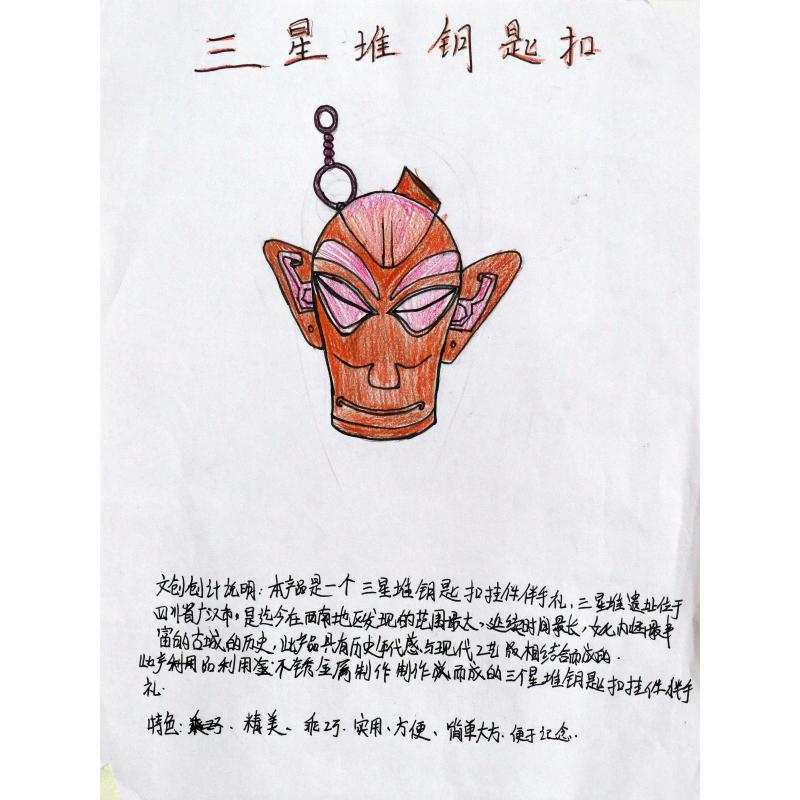 三星堆钥匙扣
文创创计说明:本产品是一个三星堆钥匙扣挂件伴手礼,三星堆遗址位于
四川省广汉市,是迄今在西南地区发现的范围最大、延续时间最长,文化内涵最丰
富的古城的历史,此产品具有历史年代感与现代工艺版相结合而成的.
此产利用品利用金不锈金属制作制作成而成的三个星堆钥匙扣挂件伴手
礼.
特色: 精美、乖巧.实用、方便、简单大方.便于记念.